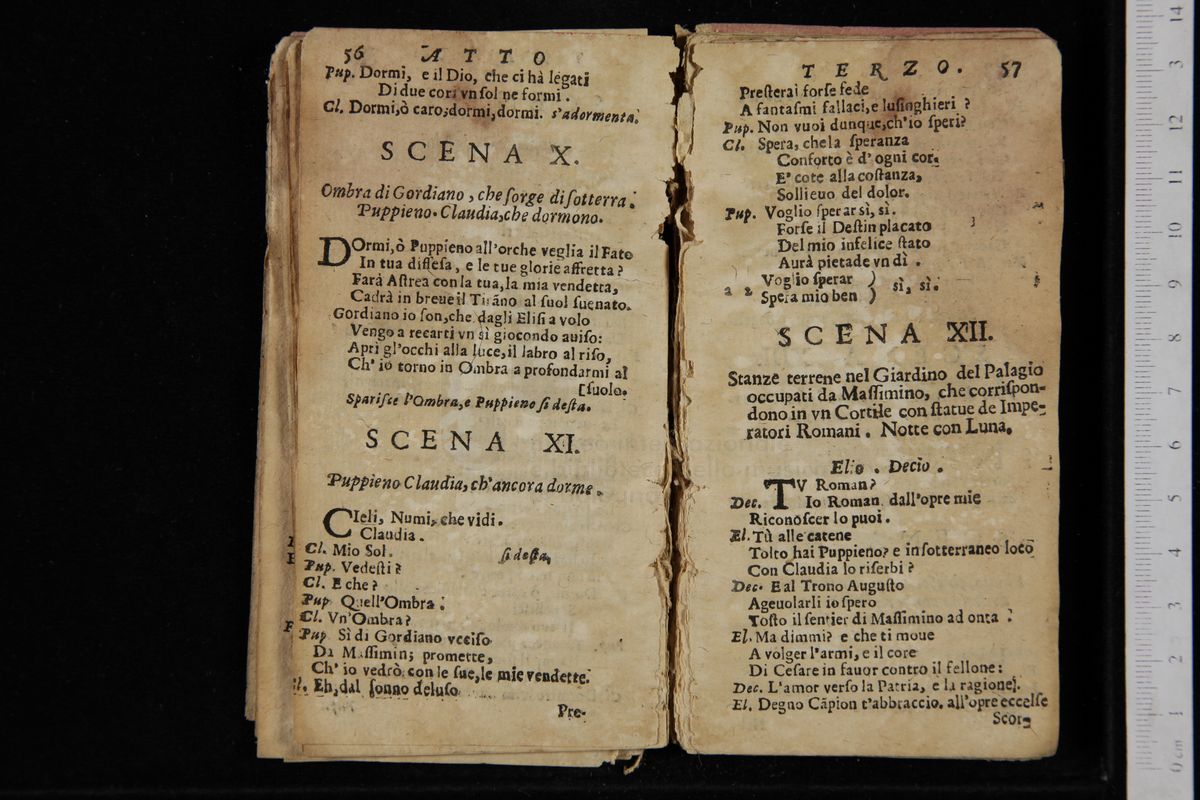 56 ATTO
Pup. Dormi, e il Dio, che ci hà legati
Di due cori vn sol ne formi.
Cl. Dormi, ò caro; dormi, dormi. s'adormenta.
SCENA X.
Ombra di Gordiano, che sorge di sotterra.
Puppieno. Claudia, che dormono.
DOrmi, ò Puppieno all'orche veglia il Fato
In tua diffesa, e le tue glorie affretta?
Farà Astrea con la tua, la mia vendetta,
Cadrà in breue il Tirāno al suol suenato.
Gordiano io son, che dagli Elisi a volo
Vengo a recarti vn sì giocondo auiso:
Apri gl'occhi alla luce, il labro al riso,
Ch' io torno in Ombra a profondarmi al
[suolo.
Sparisce l'Ombra, e Puppieno si desta.
SCENA XI.
Puppieno Claudia, ch'ancora dorme.
CIeli, Numi, che vidi.
Claudia.
Cl. Mio Sol. si desta,
Pup. Vedesti?
Cl. E che?
Pup Quell'Ombra.
Cl. Vn'Ombra?
Pup Sì di Gordiano vcciso
Da Massimin; promette,
Ch' io vedrò con le sue, le mie vendette.
Cl. Eh, dal sonno deluso
Pre-
TERZO. 57
Presterai forse fede
A fantasmi fallaci, e lusinghieri?
Pup. Non vuoi dunque, ch'io speri?
Cl. Spera, che la speranza
Conforto è d' ogni cor.
E' cote alla costanza,
Sollieuo del dolor.
Pup. Voglio sperar sì, sì.
Forse il Destin placato
Del mio infelice stato
Aurà pietade vn dì.
a 2 Voglio sperar ) sì, sì.
Spera mio ben )
SCENA XII.
Stanze terrene nel Giardino del Palagio
occupati da Massimino, che corrispon-
dono in vn Cortile con statue de Impe-
ratori Romani. Notte con Luna.
Elio. Decio.
TV Roman?
Dec. Io Roman dall'opre mie
Riconoscer lo puoi.
El. Tù alle catene
Tolto hai Puppieno? e in sotterraneo loco
Con Claudia lo riserbi?
Dec. E al Trono Augusto
Ageuolarli io spero
Tosto il sentier di Massimino ad onta.
El. Ma dimmi? e che ti moue
A volger l'armi, e il core
Di Cesare in fauor contro il fellone:
Dec. L'amor verso la Patria, e la ragione.
El. Degno Cāpion t'abbraccio. all'opre eccelse
Scor-